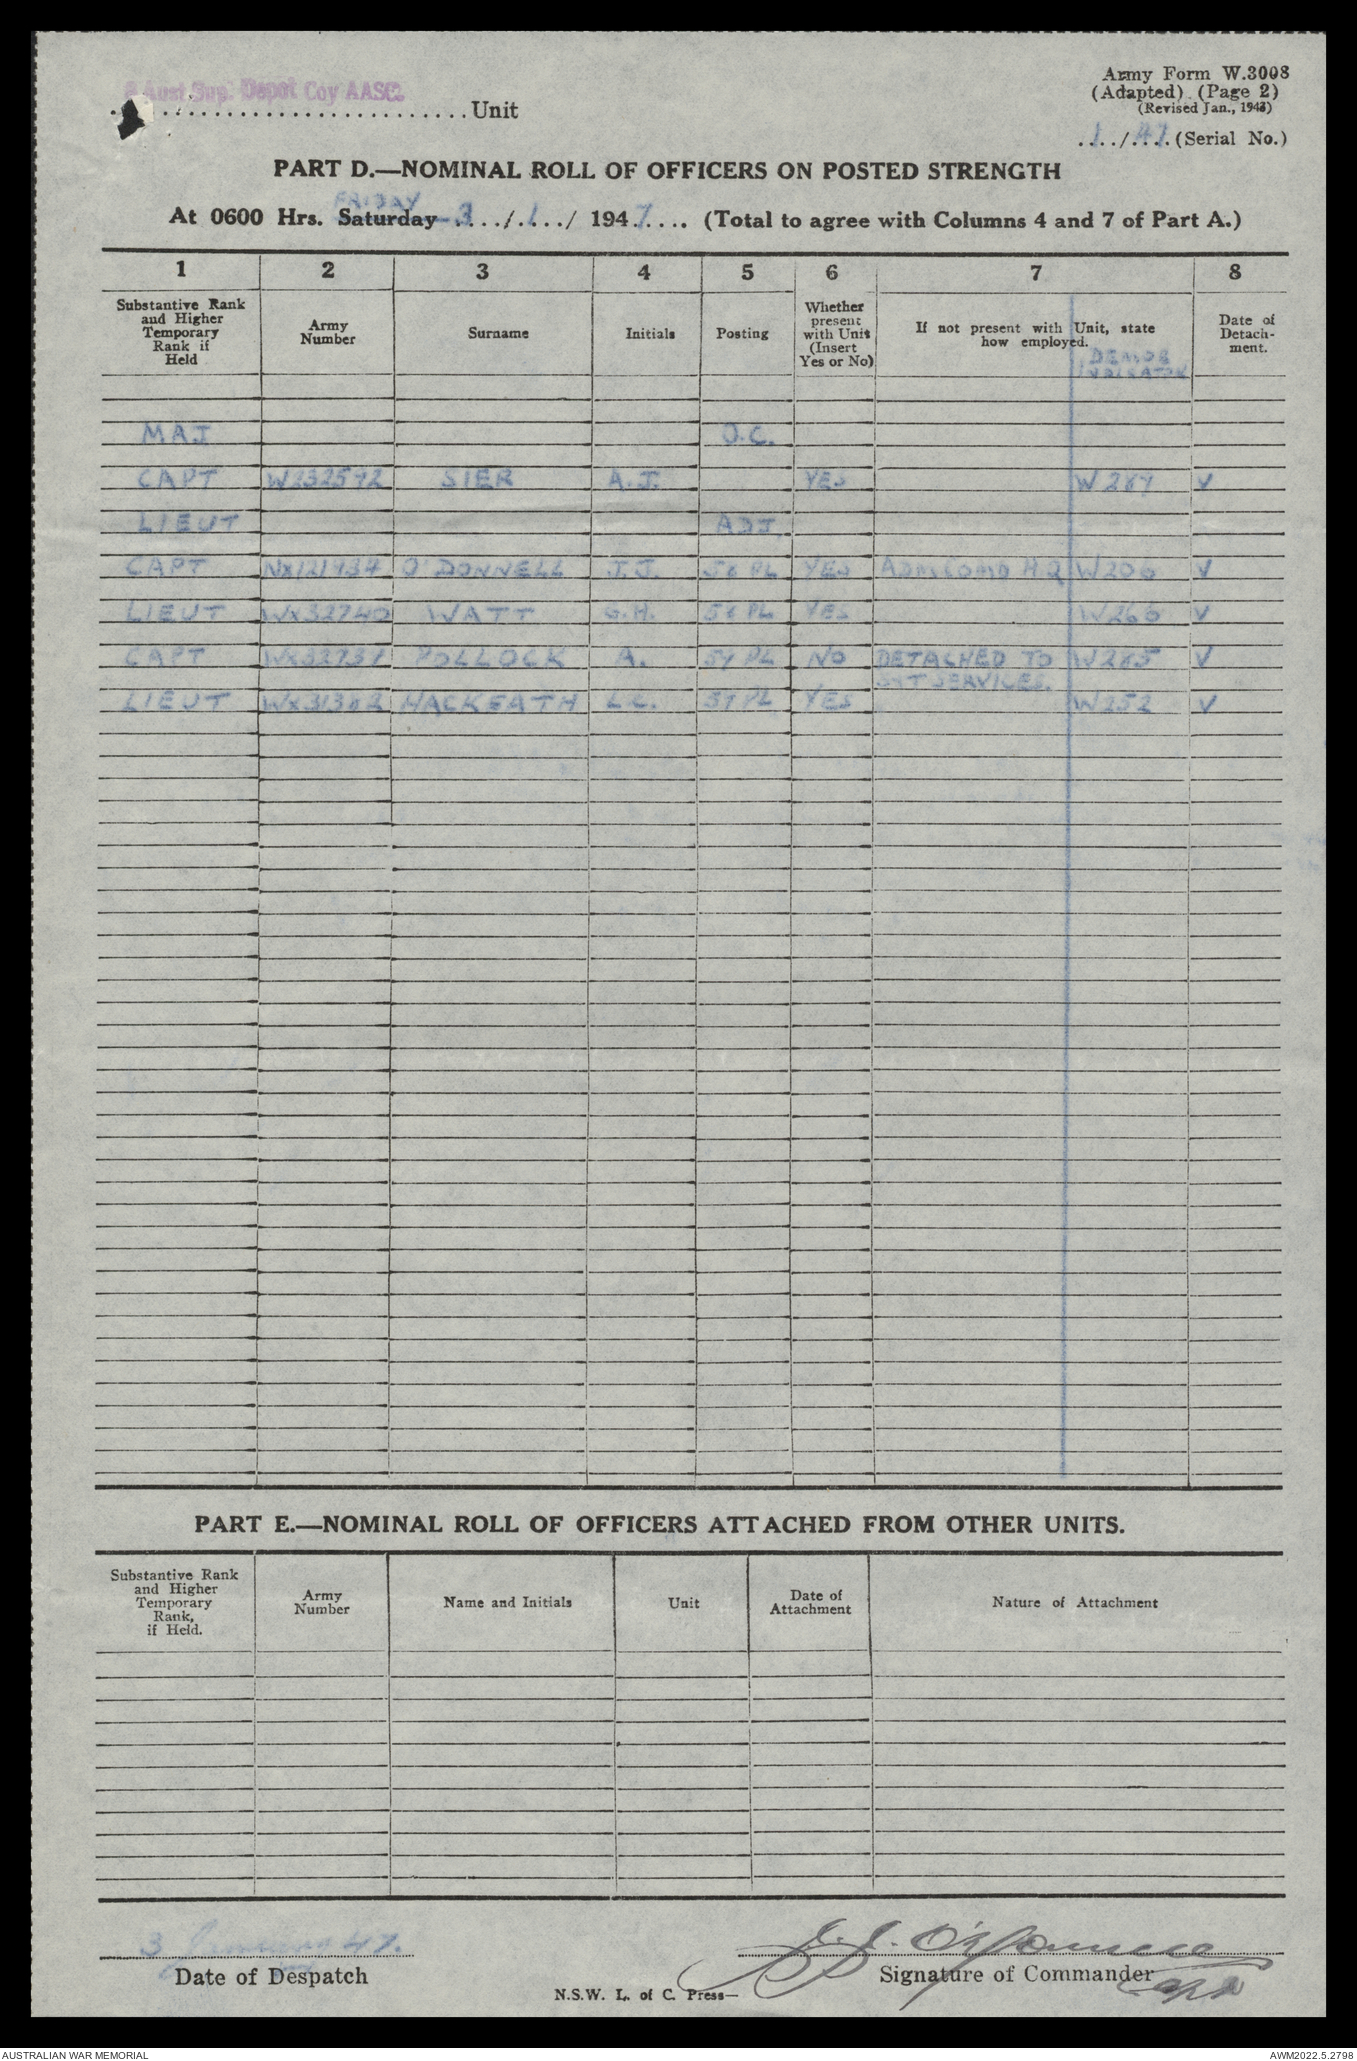 8 Aust Sup. Depot Coy AASC.
Unit
Army Form W.3008
(Adapted) (Page 2)
(Revised Jan., 1943)
1/47 (Serial No.)
PART D.—NOMINAL ROLL OF OFFICERS ON POSTED STRENGTH
FRIDAY
At 0600 Hrs. Saturday 3/1/ 1947 (Total to agree with Columns 4 and 7 of Part A.)
1 2 3 4 5 6 7 8
Substantive Rank and Higher Temporary Rank if Held
Army Number
Surname
Initials
Posting
Whether present with Unit (Insert Yes or No)
If not present with Unit, state how employed.
DEMOB INDICATOR
Date of Detachment.
MAJ O.C.
CAPT W232592 SIER A.J. YES W289 V
LIEUT ADJ.
CAPT NX121434 O'DONNELL J.J. 58 PL YES ADMCOMD H.Q W206 V
LIEUT WX32740 WATT G.H. 58 PL YES W260 V
CAPT POLLOCK A. 59 PL NO DETACHED TO W285 V
SERVICES.
LIEUT WX31302 MACKEATH L.C. 59 PL YES W252 V
PART E.—NOMINAL ROLL OF OFFICERS ATTACHED FROM OTHER UNITS.
Substantive Rank and Higher Temporary Rank, if Held.
Army Number
Name and Initials
Unit
Date of Attachment
Nature of Attachment
3 January 47.
Date of Despatch
J.J. O'Donnell
Signature of Commander
Capt
N.S.W. L. of C. Press—
AUSTRALIAN WAR MEMORIAL
AWM2022.5.2798